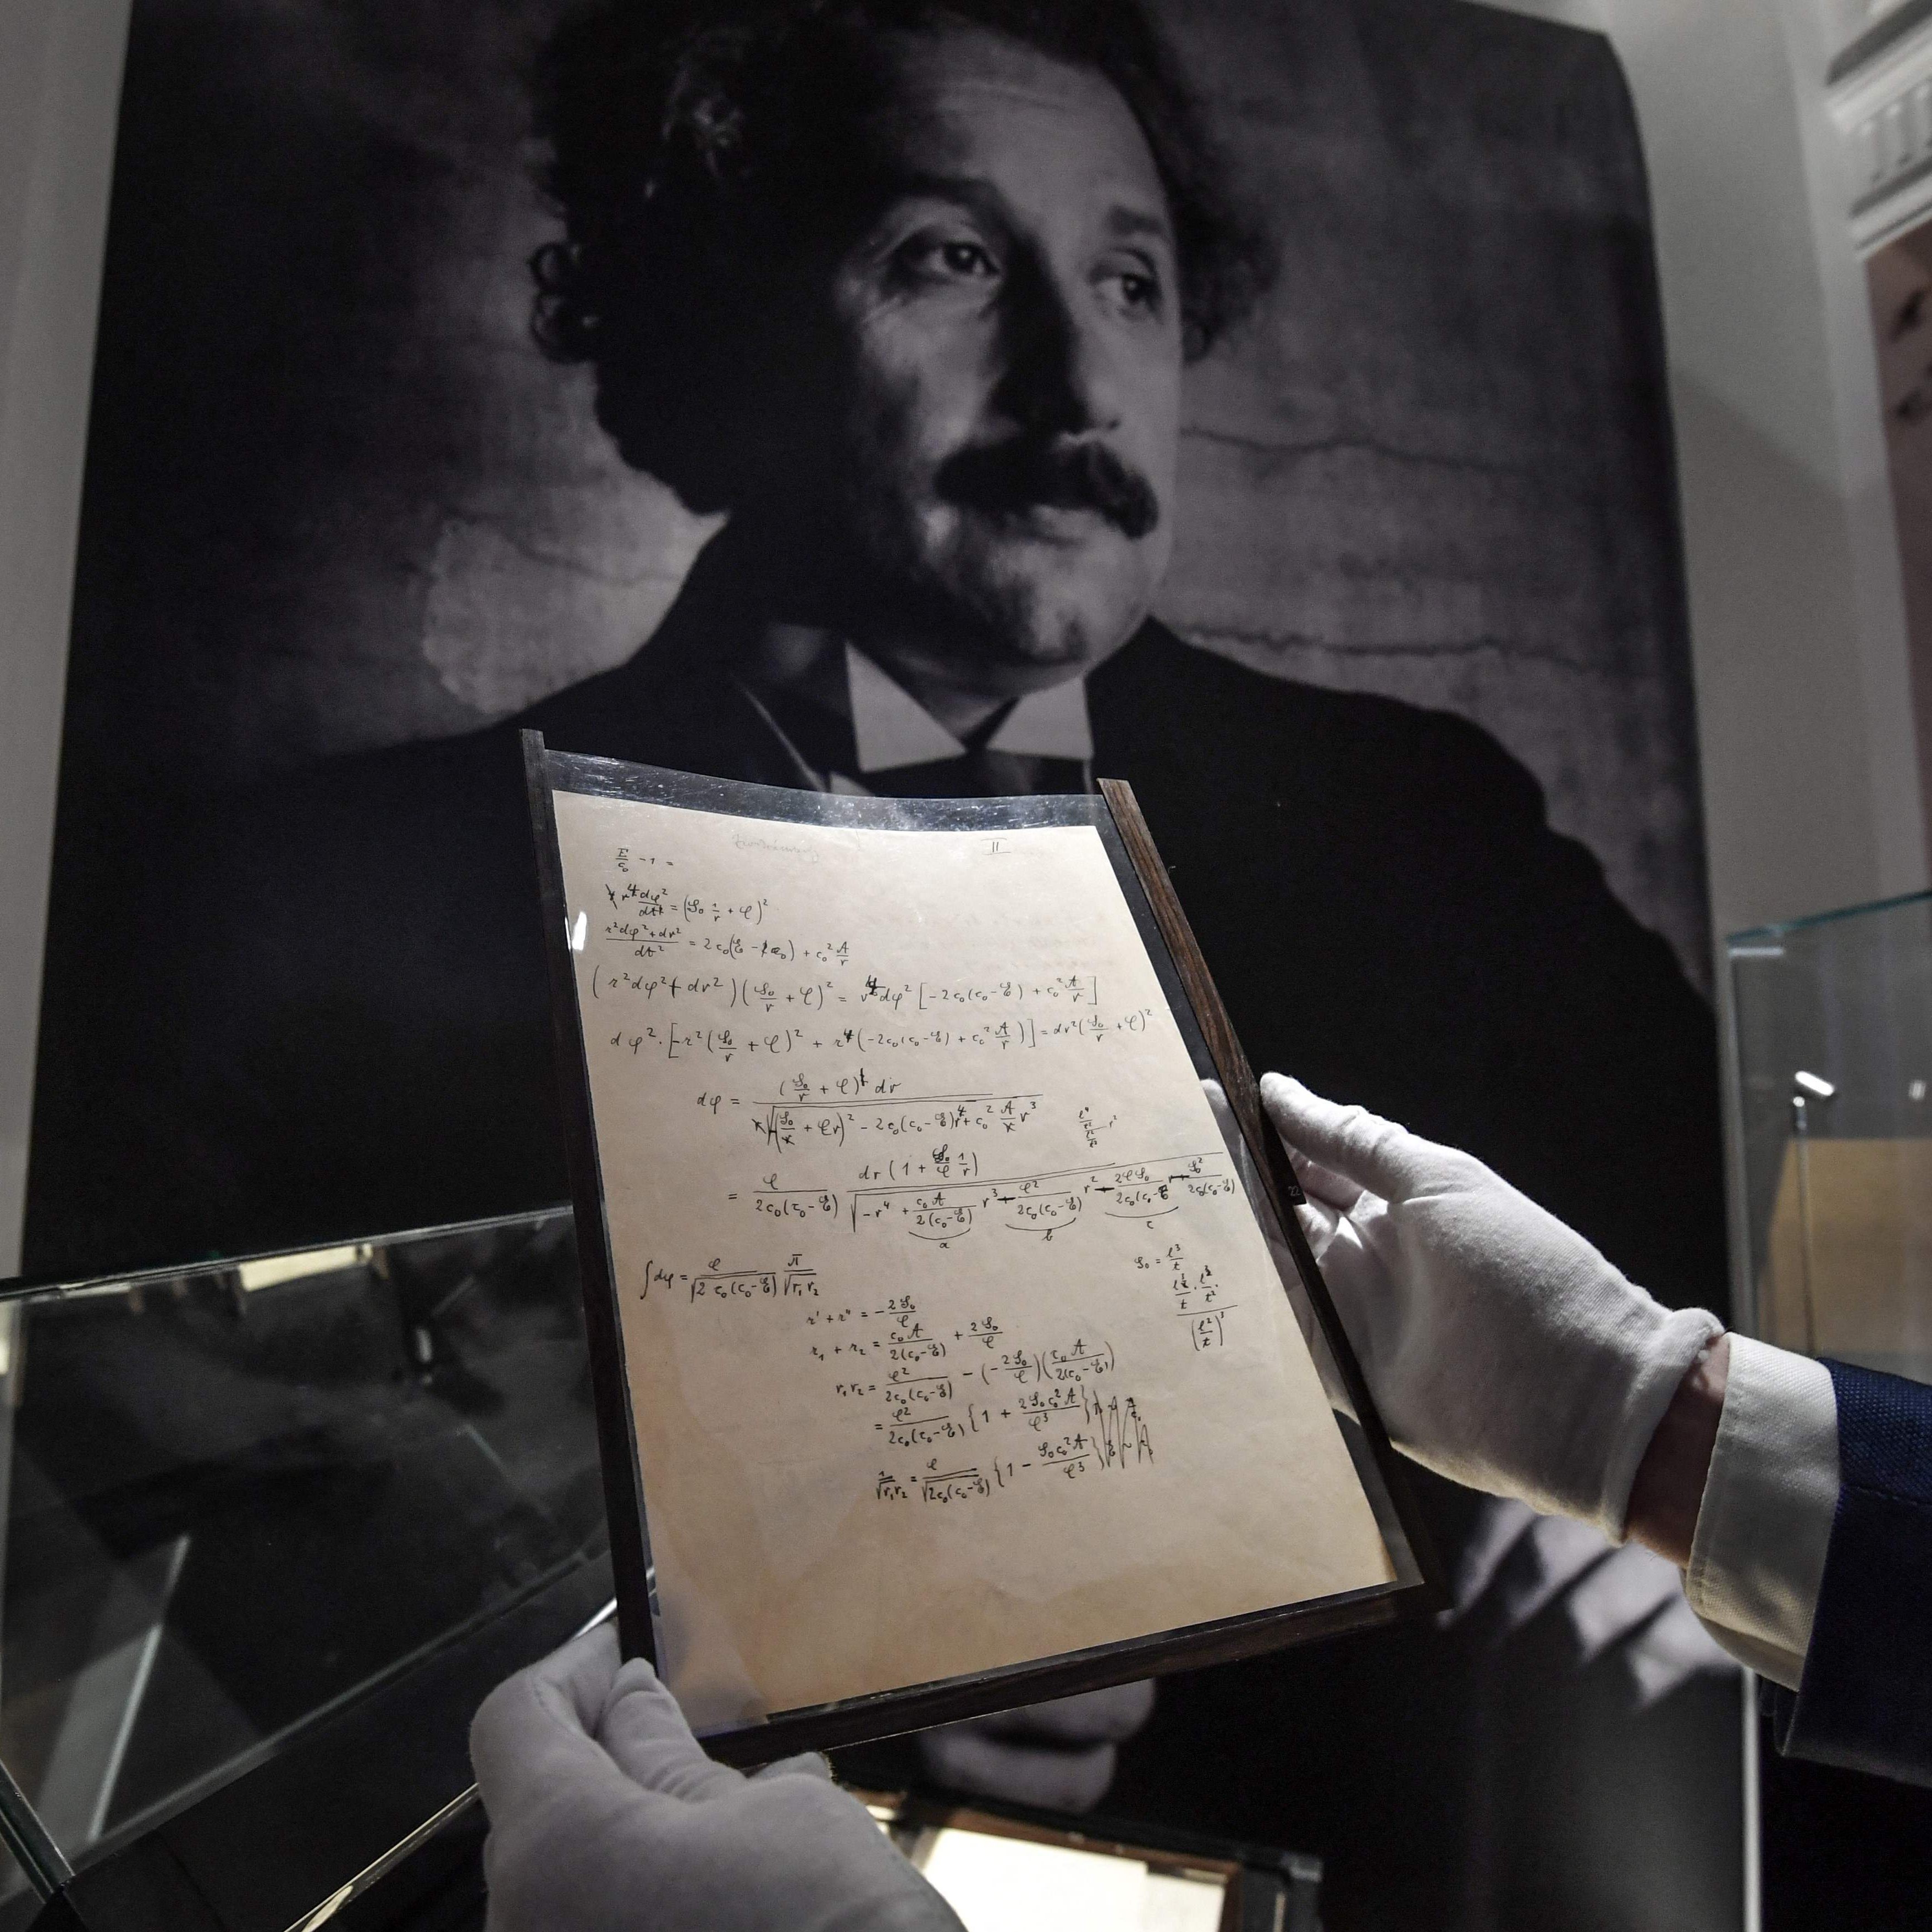 II
E/c₀ - 1 =
r⁴ dφ²/dt² = (𝒮₀ 1/r + 𝒞)²
(r²dφ² + dr²)/dt² = 2c₀(ℰ - c₀) + c₀² A/r
(r²dφ² + dr²)(𝒮₀/r + 𝒞)² = r⁴dφ² [-2c₀(c₀-ℰ) + c₀² A/r]
dφ² · [-r²(𝒮₀/r + 𝒞)² + r⁴(-2c₀(c₀-ℰ) + c₀² A/r)] = dr²(𝒮₀/r + 𝒞)²
dφ = (𝒮₀/r + 𝒞) dr
√(-(𝒮₀ + 𝒞r)² - 2c₀(c₀-ℰ)r⁴ + c₀² A r³)
= 𝒞/(2c₀(c₀-ℰ)) dr(1 + 𝒮₀/𝒞 1/r)
√(-r⁴ + c₀A/(2(c₀-ℰ)) r³ - 𝒞²/(2c₀(c₀-ℰ)) r² - 2𝒞𝒮₀/(2c₀(c₀-ℰ)) r - 𝒮₀²/(2c₀(c₀-ℰ)))
a b c
∫dφ = 𝒞/√(2c₀(c₀-ℰ)) π/√(r₁r₂)
𝒮₀ = l³/t
r' + r'' = -2𝒮₀/𝒞
r₁ + r₂ = c₀A/(2(c₀-ℰ)) + 2𝒮₀/𝒞
r₁r₂ = 𝒞²/(2c₀(c₀-ℰ)) - (-2𝒮₀/𝒞)(c₀A/(2(c₀-ℰ)))
= 𝒞²/(2c₀(c₀-ℰ)) {1 + 2𝒮₀c₀²A/𝒞³}
1/√(r₁r₂) = 𝒞/√(2c₀(c₀-ℰ)) {1 - 𝒮₀c₀²A/𝒞³}